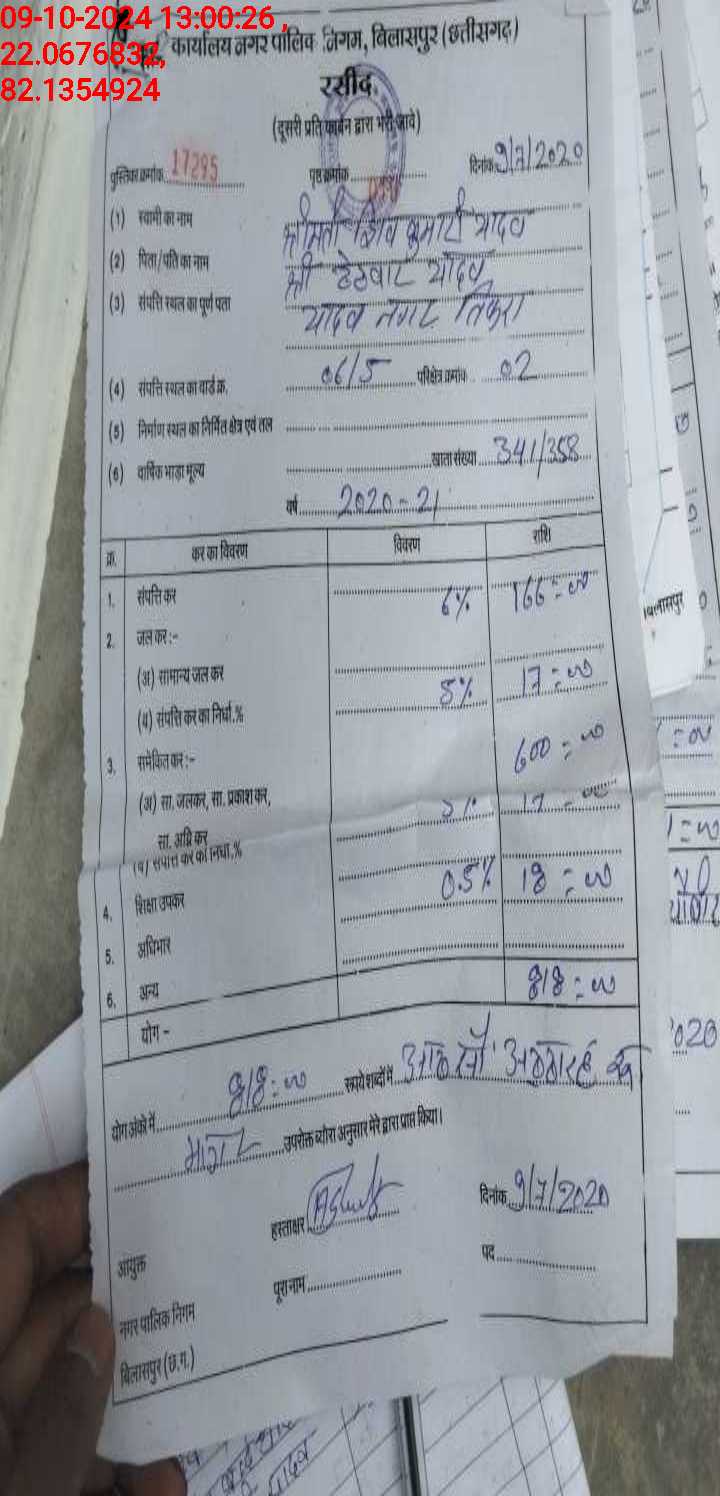 09-10-2024 13:00:26,
22.0676832,
82.1354924
कार्यालय नगर पालिक निगम, बिलासपुर (छत्तीसगढ़)
रसीद
(दूसरी प्रति कार्बन द्वारा भरी जावे)
पुस्तिका क्रमांक 17295 पृष्ठ क्रमांक दिनांक 9/7/2020
(1) स्वामी का नाम श्रीमती शिव कुमारी यादव
(2) पिता/पति का नाम श्री हेठवार यादव
(3) संपत्ति स्थल का पूर्ण पता यादव नगर तिफरा
(4) संपत्ति स्थल का वार्ड क्र. 06/5 परिक्षेत्र क्रमांक 02
(5) निर्माण स्थल का निर्मित क्षेत्र एवं तल
(6) वार्षिक भाड़ा मूल्य खाता संख्या 341/358
वर्ष 2020-21
क्र. कर का विवरण विवरण राशि
1. संपत्ति कर 6% 166=00
2. जल कर :-
(अ) सामान्य जल कर
(ब) संपत्ति कर का निर्धा.% 5% 17=00
3. समेकित कर :- 600=00
(अ) सा. जलकर, सा. प्रकाश कर, 17=00
सा. अग्नि कर
(ब) संपत्ति कर का निर्धा.%
4. शिक्षा उपकर 0.5% 18=00
5. अधिभार
6. अन्य
योग - 818=00
योग अंको में 818=00 रूपये शब्दों में आठ सौ अठ्ठारह रू
मात्र उपरोक्त ब्योरा अनुसार मेरे द्वारा प्राप्त किया।
हस्ताक्षर दिनांक 9/7/2020
आयुक्त पूरा नाम पद
नगर पालिक निगम
बिलासपुर (छ.ग.)
बिलासपुर